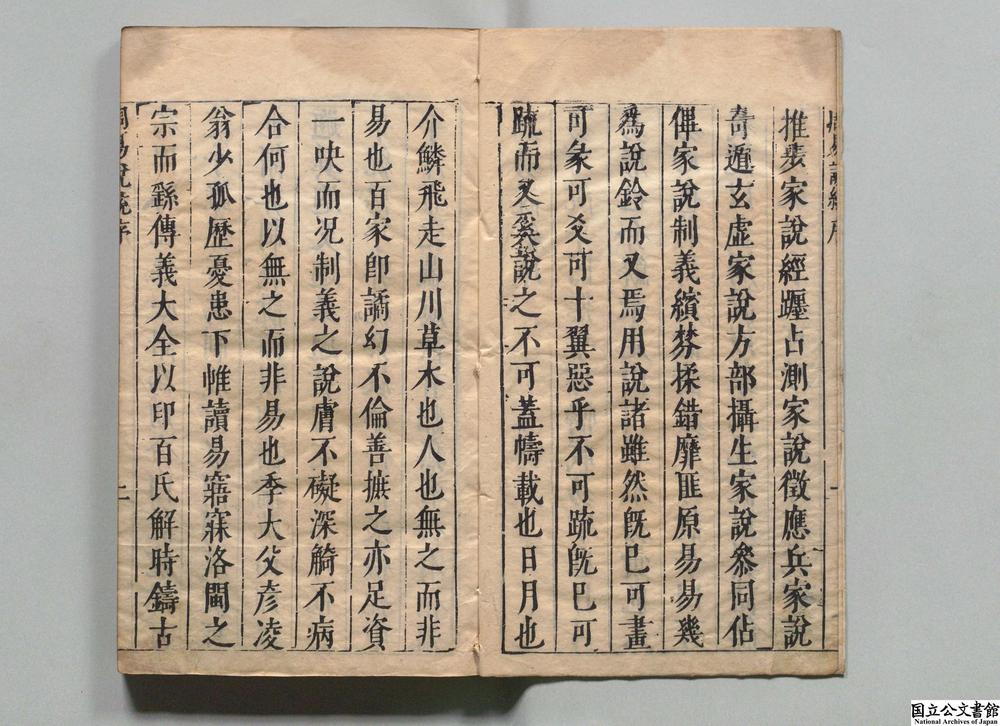 推髮家說經躔占測家說徵應兵家說
奇遁玄虛家說方部攝生家說參同佔
俾家說制義繽棼揉錯靡匪原易易幾
爲說鈴而又焉用說諸雖然旣已可畫
可彖可爻可十翼惡乎不可疏旣已可
疏而又奚說之不可蓋幬載也日月也
介鱗飛走山川草木也人也無之而非
易也百家卽譎幻不倫善摭之亦足資
一吷而況制義之說膚不礙深觭不病
合何也以無之而非易也季大父彥凌
翁少孤歷憂患下帷讀易寤寐洛閩之
宗而繇傳義大全以印百氏解時鑄古
周易說統序
二
國立公文書館
National Archives of Japan